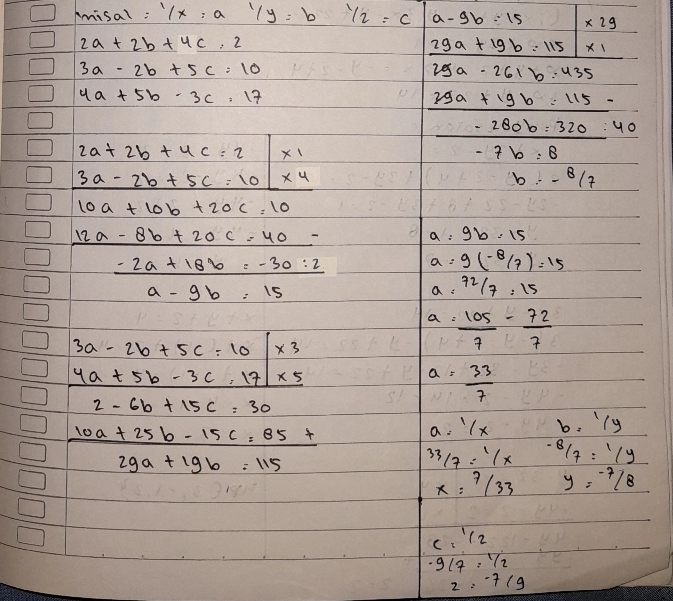 misal : 1/x : a 1/y : b 1/2 : c
2a + 2b + 4c : 2
3a - 2b + 5c : 10
4a + 5b - 3c : 17
2a + 2b + 4c : 2 | x 1
3a - 2b + 5c : 10 | x 4
10a + 10b + 20c : 10
12a - 8b + 20c = 40 -
-2a + 18b = -30 : 2
a - 9b : 15
3a - 2b + 5c : 10 | x 3
4a + 5b - 3c : 17 | x 5
2 - 6b + 15c : 30
10a + 25b - 15c = 85 +
29a + 19b : 115
a - 9b : 15 | x 29
29a + 19b : 115 | x 1
29a - 261b : 435
29a + 19b : 115 -
- 280b : 320 : 40
- 7b : 8
b : - 8/7
a : 9b : 15
a : 9 (-8/7) : 15
a : 72/7 : 15
a : 105/7 - 72/7
a : 33/7
a : 1/x b : 1/y
33/7 : 1/x -8/7 : 1/y
x : 7/33 y = -7/8
c : 1/2
-9/7 : 1/2
2 : -7/9